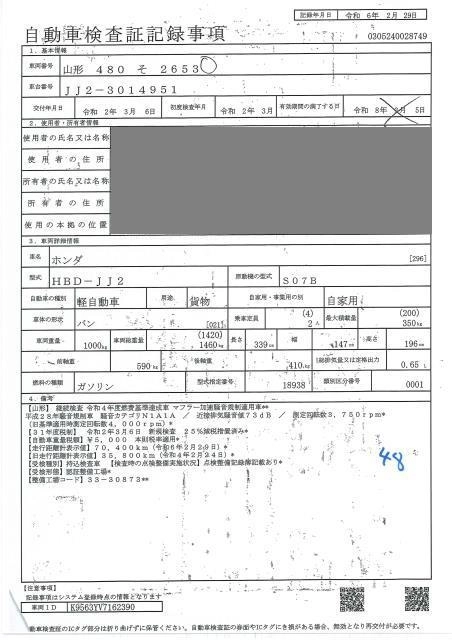 記録年月日 令和 6年 2月 29日
自動車検査証記録事項
0305240028749
1. 基本情報
車両番号 山形 480 そ 2653
車台番号 JJ2-3014951
交付年月日 令和 2年 3月 6日 初度検査年月 令和 2年 3月 有効期間の満了する日 令和 8年 3月 5日
2. 使用者・所有者情報
使用者の氏名又は名称
使用者の住所
所有者の氏名又は名称
所有者の住所
使用の本拠の位置
3. 車両詳細情報
車名 ホンダ [296]
型式 HBD-JJ2 原動機の型式 S07B
自動車の種別 軽自動車 用途 貨物 自家用・事業用の別 自家用
車体の形状 バン [021] 乗車定員 (4) 2人 最大積載量 (200) 350kg
車両重量 1000kg 車両総重量 (1420) 1460kg 長さ 339cm 幅 147cm 高さ 196cm
前軸重 590kg 後軸重 410kg 総排気量又は定格出力 0.65 L
燃料の種類 ガソリン 型式指定番号 18938 類別区分番号 0001
4. 備考
【山形】 継続検査 令和4年度燃費基準達成車 マフラー加速騒音規制適用車**
平成28年騒音規制車 騒音カテゴリN1A1A / 近接排気騒音値73dB / 測定回転数3,750rpm*
(旧基準適用時測定回転数4,000rpm)**
【31年度税制】 令和2年3月6日 新規検査 25%減税措置済み*
【自動車重量税額】¥5,000 本則税率適用*
【走行距離計表示値】70,400km(令和6年2月29日)*
【旧走行距離計表示値】35,800km(令和4年2月24日)*
【受検種別】持込検査車 【検査時の点検整備実施状況】点検整備記録簿記載あり*
【受検形態】認証整備工場*
【整備工場コード】33-30873**
48
【注意事項】
記録事項はシステム登録時点の情報となります
車両ID K9563YV7162390
自動車検査証のICタグ部分は折り曲げずに保管ください。自動車検査証の券面やICタグにき損がある場合、無効となり再交付が必要です。